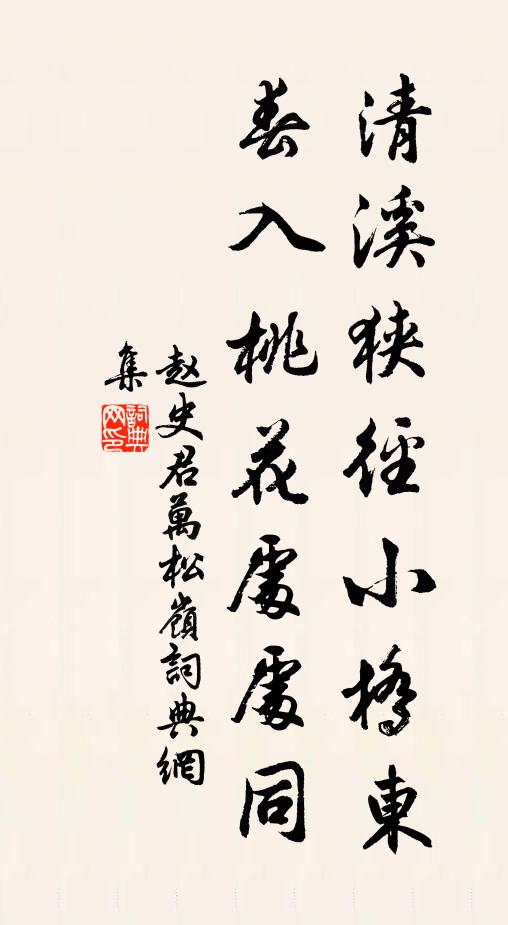 清溪狹徑小橋東
春入桃花處處同
赵史君萬松嶺詞典網
集
詞典
网印